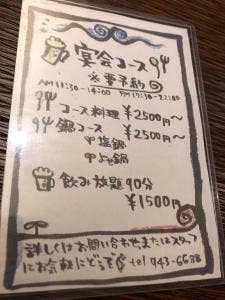 宴会コース
※要予約
AM11:30-14:00 PM17:30-22:00
コース料理 ¥2500円～
鍋コース ¥2500円～
塩鍋
飲み放題90分
¥1500円
詳しくはお問い合わせまたはスタッフ
にお気軽にどうぞ tel 943-6688